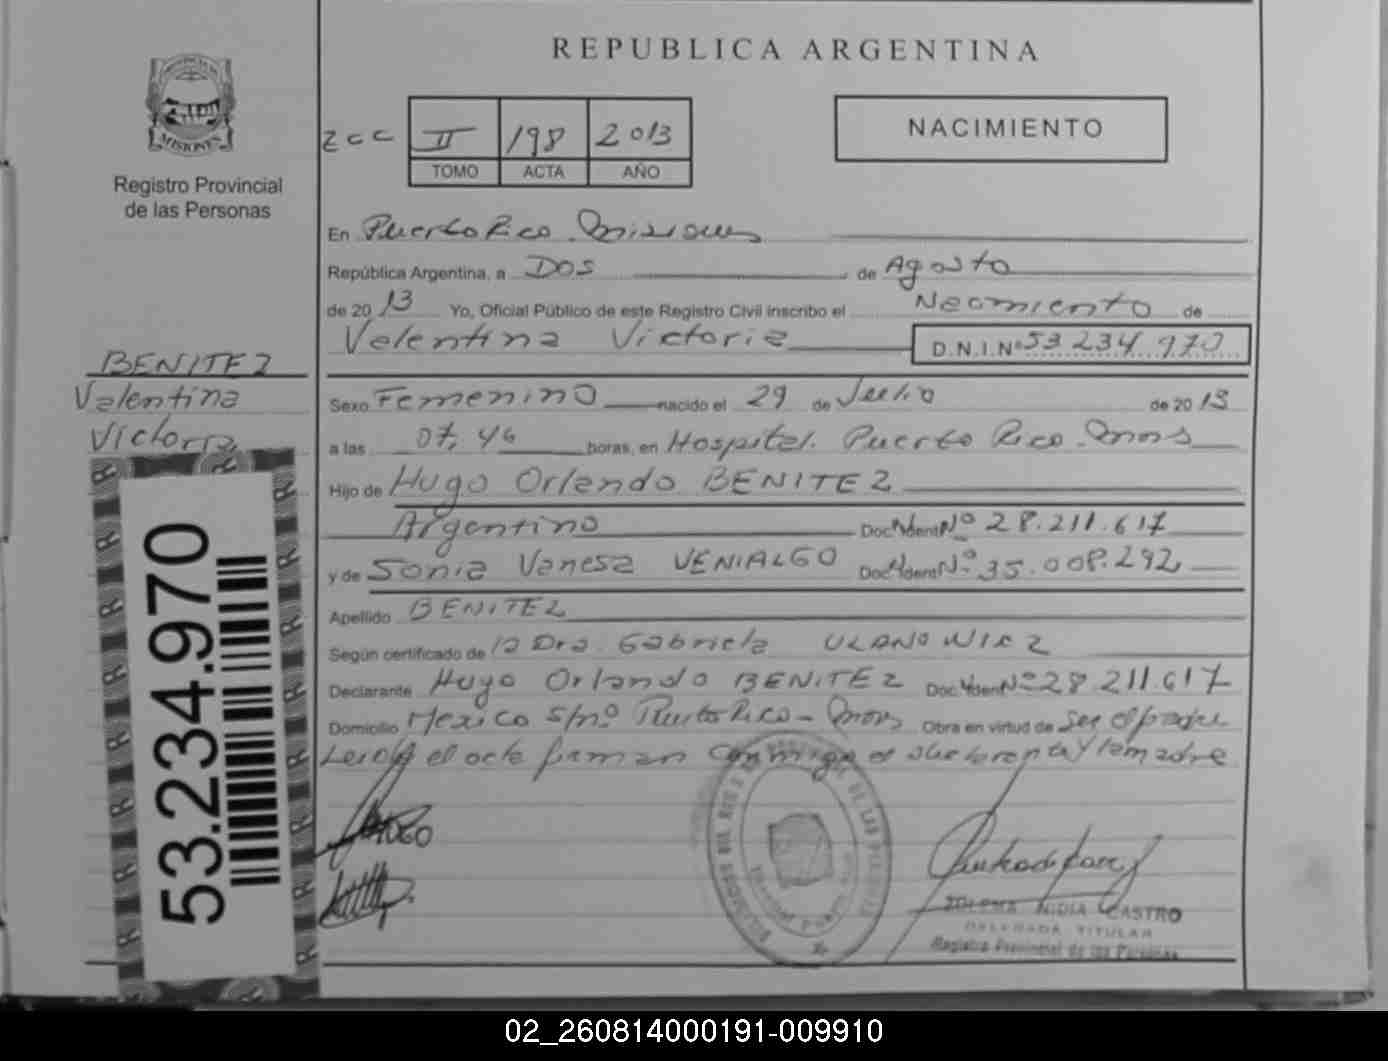 REPUBLICA ARGENTINA
PROVINCIA DE
MISIONES
Registro Provincial
de las Personas
II 198 2013
TOMO ACTA AÑO
NACIMIENTO
En Puerto Rico. Misiones
República Argentina, a DOS de Agosto
de 2013 Yo, Oficial Público de este Registro Civil inscribo el Nacimiento de
Valentina Victoria D.N.I.Nº 53 234 970
BENITEZ
Valentina
Victoria
53.234.970
Sexo Femenino nacido el 29 de Julio de 2013
a las 07,46 horas, en Hospital. Puerto Rico. Mnes
Hijo de Hugo Orlando BENITEZ
Argentino Doc. Ident Nº 28.211.617
y de Sonia Vanesa VENIALGO Doc. Ident Nº 35.008.292
Apellido BENITEZ
Según certificado de la Dra. Gabriela
Declarante Hugo Orlando BENITEZ Doc. Ident Nº 28.211.617
Domicilio Mexico s/nº Puerto Rico - Mnes Obra en virtud de ser el padre
Leida el acta firman conmigo el declarante y la madre
NIDIA CASTRO
DELEGADA TITULAR
Registro Provincial de las Personas
02_260814000191-009910